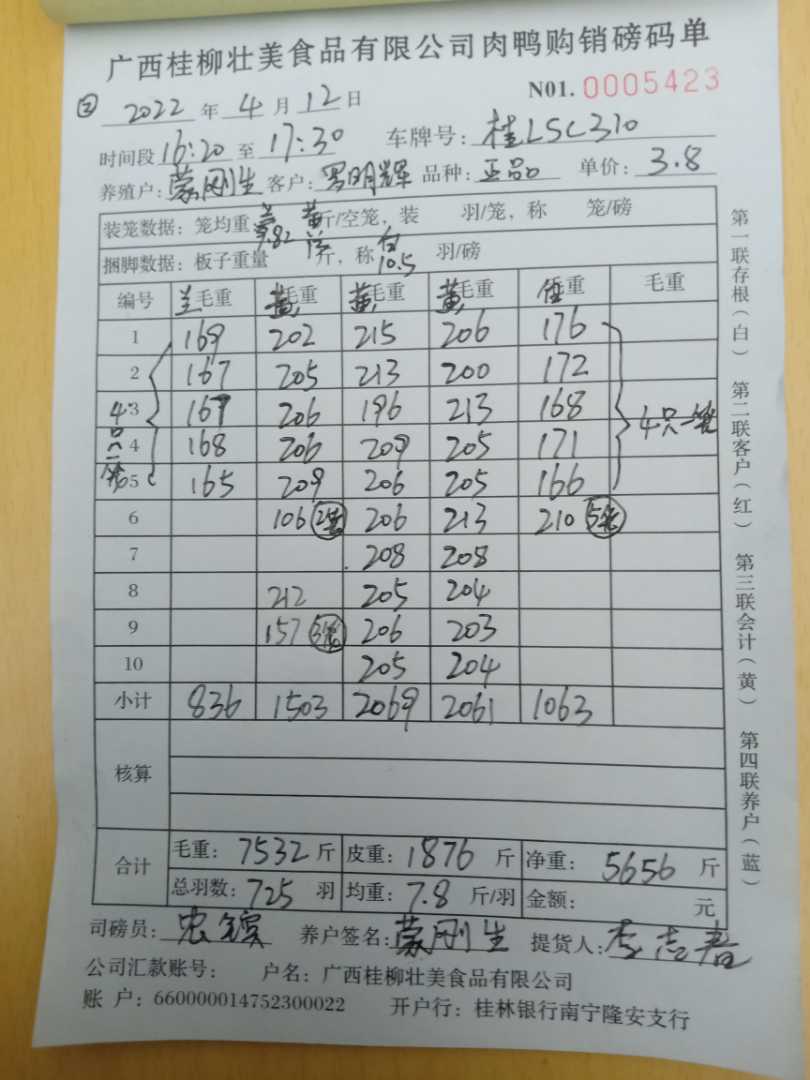 广西桂柳壮美食品有限公司肉鸭购销磅码单
② 2022 年 4 月 12 日 N01. 0005423
时间段 16:20 至 17:30 车牌号: 桂LSC310
养殖户: 蒙刚生 客户: 罗明辉 品种: 正品 单价: 3.8
装笼数据: 笼均重 9.82 黄 斤/空笼, 装 羽/笼, 称 笼/磅
捆脚数据: 板子重量 斤, 称 10.5 羽/磅
编号 兰毛重 黄毛重 黄毛重 黄毛重 毛重 毛重
1 169 202 215 206 176
2 167 205 213 200 172
3 167 206 196 213 168
4 168 206 209 205 171
5 165 209 206 205 166
4只一笼
4只一笼
6 106 2笼 206 213 210 5笼
7 208 208
8 212 205 204
9 157 3笼 206 203
10 205 204
小计 836 1503 2069 2061 1063
核算
合计
毛重: 7532 斤 皮重: 1876 斤 净重: 5656 斤
总羽数: 725 羽 均重: 7.8 斤/羽 金额: 元
司磅员: 养户签名: 蒙刚生 提货人: 李志春
公司汇款账号: 户名: 广西桂柳壮美食品有限公司
账 户: 660000014752300022 开户行: 桂林银行南宁隆安支行
第一联存根(白) 第二联客户(红) 第三联会计(黄) 第四联养户(蓝)